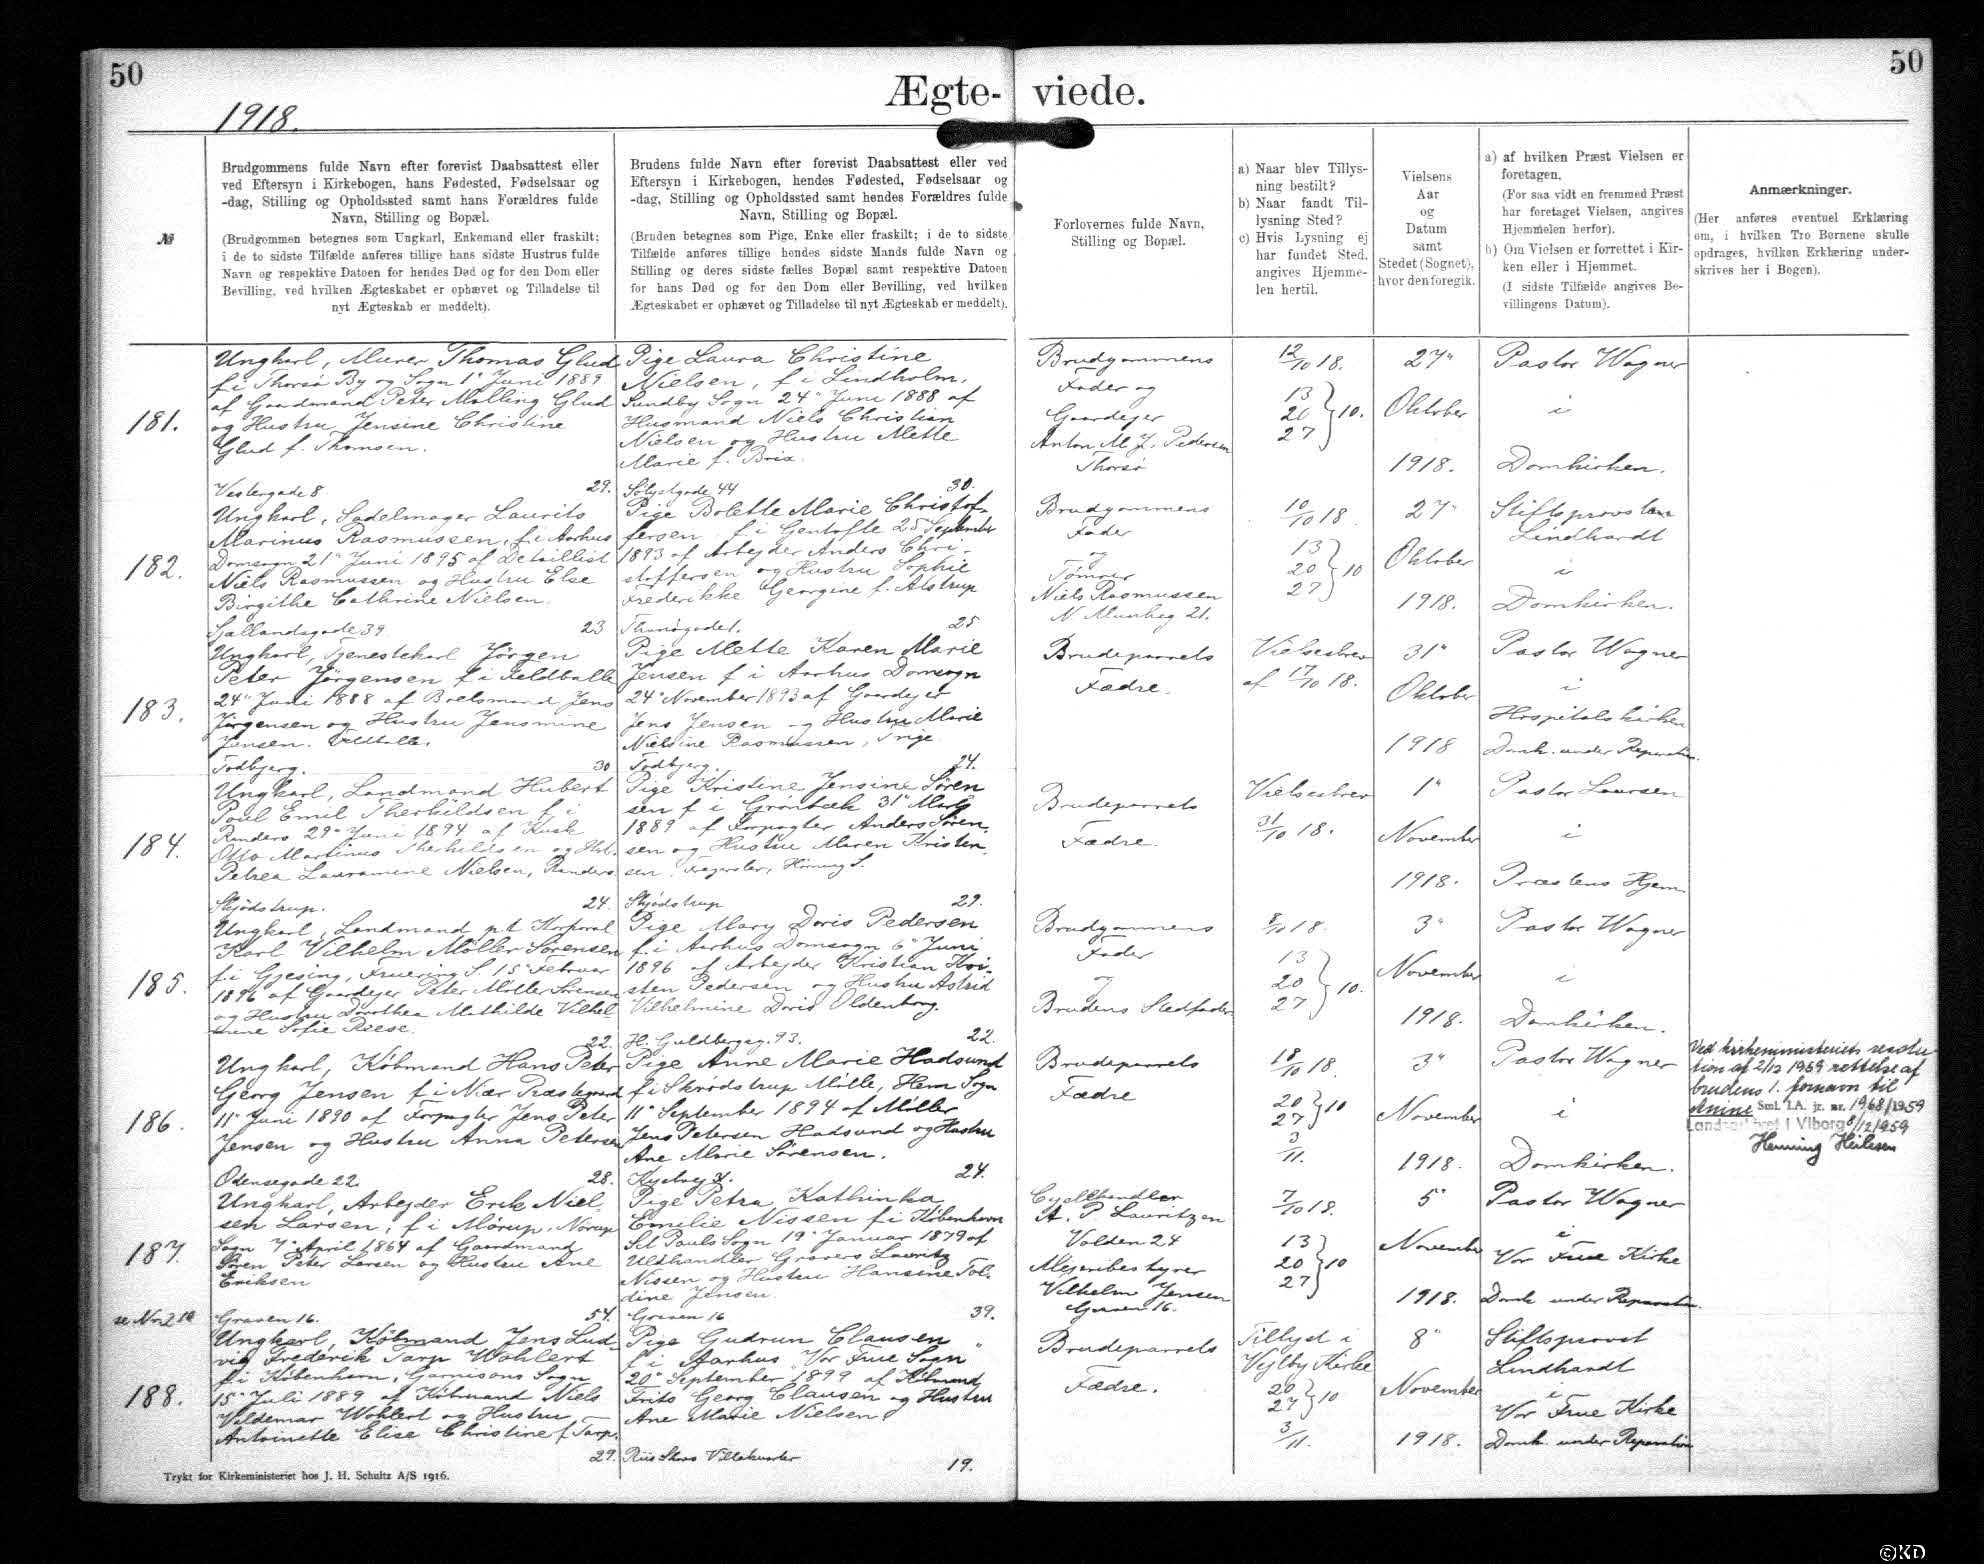 50
50
Ægte- viede.
1918.
№
Brudgommens fulde Navn efter forevist Daabsattest eller
ved Eftersyn i Kirkebogen, hans Fødested, Fødselsaar og
-dag, Stilling og Opholdssted samt hans Forældres fulde
Navn, Stilling og Bopæl.
(Brudgommen betegnes som Ungkarl, Enkemand eller fraskilt;
i de to sidste Tilfælde anføres tillige hans sidste Hustrus fulde
Navn og respektive Datoen for hendes Død og for den Dom eller
Bevilling, ved hvilken Ægteskabet er ophævet og Tilladelse til
nyt Ægteskab er meddelt).
Brudens fulde Navn efter forevist Daabsattest eller ved
Eftersyn i Kirkebogen, hendes Fødested, Fødselsaar og
-dag, Stilling og Opholdssted samt hendes Forældres fulde
Navn, Stilling og Bopæl.
(Bruden betegnes som Pige, Enke eller fraskilt; i de to sidste
Tilfælde anføres tillige hendes sidste Mands fulde Navn og
Stilling og deres sidste fælles Bopæl samt respektive Datoen
for hans Død og for den Dom eller Bevilling, ved hvilken
Ægteskabet er ophævet og Tilladelse til nyt Ægteskab er meddelt).
Forlovernes fulde Navn,
Stilling og Bopæl.
a) Naar blev Tillys-
ning bestilt?
b) Naar fandt Til-
lysning Sted?
c) Hvis Lysning ej
har fundet Sted,
angives Hjemme-
len hertil.
Vielsens
Aar
og
Datum
samt
Stedet (Sognet),
hvor den foregik.
a) af hvilken Præst Vielsen er
foretagen.
(For saa vidt en fremmed Præst
har foretaget Vielsen, angives
Hjemmelen herfor).
b) Om Vielsen er forrettet i Kir-
ken eller i Hjemmet.
(I sidste Tilfælde angives Be-
villingens Datum).
Anmærkninger.
(Her anføres eventuel Erklæring
om, i hvilken Tro Børnene skulle
opdrages, hvilken Erklæring under-
skrives her i Bogen).
181.
Ungkarl, Murer Thomas Glud
f. i Thorsø By og Sogn 1" Juni 1889
af Gaardmand Peter Mølling Glud
og Hustru Jensine Christine
Glud f. Thomsen.
Vestergade 8. 29.
Pige Laura Christine
Nielsen, f. i Lindholm,
Sundby Sogn 24" Juni 1888 af
Husmand Niels Christian
Nielsen og Hustru Mette
Marie f. Brix.
Sølystgade 44 30.
Brudgommens
Fader og
Gaardejer
Anton M. J. Pedersen
Thorsø
12/10 18.
13
20 } 10.
27
27"
Oktober
1918.
Pastor Wagner
i
Domkirken.
182.
Ungkarl, Sadelmager Laurits
Marinus Rasmussen, f. i Aarhus
Domsogn 21" Juni 1895 af Detaillist
Niels Rasmussen og Hustru Else
Birgithe Cathrine Nielsen.
Sjællandsgade 39 23
Pige Bolette Marie Christof-
fersen, f. i Gentofte 25 September
1893 af Arbejder Anders Chri-
stoffersen og Hustru Sophie
Frederikke Georgine f. Alstrup
Thunøgade 1. 25
Brudgommens
Fader
og
Tømrer
Niels Rasmussen
N. Munkeg 21.
10/10 18
13
20 } 10
27
27"
Oktober
1918.
Stiftsprovsten
Lindhardt
i
Domkirken.
183.
Ungkarl, Tjenestekarl Jørgen
Peter Jørgensen f. i Feldballe
24" Juni 1888 af Boelsmand Jens
Jørgensen og Hustru Jensmine
Jensen. Feldballe.
Todbjerg. 30
Pige Mette Karen Marie
Jensen f. i Aarhus Domsogn
24" November 1893 af Gaardejer
Jens Jensen og Hustru Marie
Nielsine Rasmussen, Trige.
Todbjerg. 24.
Brudeparrets
Fædre.
Vielsesbrev
af 17/10 18.
31"
Oktober
1918
Pastor Wagner
i
Hospitalskirken
Domk. under Reparation.
184.
Ungkarl, Landmand Hubert
Poul Emil Therkildsen f. i
Randers 29" Juni 1894 af Kusk
Otto Martinus Therkildsen og Hust.
Petrea Lauramine Nielsen, Randers
Skjødstrup. 24.
Pige Kristine Jensine Søren
sen f. i Grønbæk 31" Marts
1889 af Forpagter Anders Søren-
sen og Hustru Maren Kristen-
sen, Hørning S.
Skjødstrup 29.
Brudeparrets
Fædre.
Vielsesbrev
31/10 18.
1"
November
1918.
Pastor Laursen
i
Præstens Hjem
185.
Ungkarl, Landmand p.t. Korporal
Karl Vilhelm Møller Sørensen
f. i Gjesing, Fruering S. 15" Februar
1896 af Gaardejer Peter Møller Sørensen
og Hustru Dorothea Mathilde Vilhel-
mine Sofie Reese.
22.
Pige Mary Doris Pedersen
f. i Aarhus Domsogn 6" Juni
1896 af Arbejder Kristian Kri-
sten Pedersen og Hustru Astrid
Vilhelmine Doris Oldenborg.
H. Guldbergsg. 93. 22.
Brudgommens
Fader
og
Brudens Stedfader
8/10 18.
13
20 } 10.
27
3"
November
1918.
Pastor Wagner
i
Domkirken.
186.
Ungkarl, Købmand Hans Peter
Georg Jensen f. i Nær Præstegaard
11" Juni 1890 af Forpagter Jens Peter
Jensen og Hustru Anna Petersen
Odensegade 22. 28.
Pige Anne Marie Hadsund
f. i Skrødstrup Mølle, Hem Sogn
11" September 1894 af Møller
Jens Petersen Hadsund og Hustru
Ane Marie Sørensen.
24.
Brudeparrets
Fædre
18/10 18.
20
27 } 10
3/11.
3"
November
1918.
Pastor Wagner
i
Domkirken.
Ved kirkeministeriets resolu
tion af 2/12 1959 rettelse af
brudens 1. fornavn til
Anine Sml. LA. jr. nr. 1968/1959
Landsarkivet i Viborg 8/12 1959
Henning Heilesen
187.
se Nr. 210
Ungkarl, Arbejder Erik Niel-
sen Larsen, f. i Mørup, Nørup
Sogn 7" April 1864 af Gaardmand
Søren Peter Larsen og Hustru Ane
Eriksen
Graven 16. 54.
Pige Petra Kathinka
Emilie Nissen f. i København
Sct Pauls Sogn 19" Januar 1879 af
Uldhandler Gravers Lauritz
Nissen og Hustru Hansine Tol-
dine Jensen.
Graven 16 39.
Cyclehandler
A. P. Lauritzen
Volden 24
Mejeribestyrer
Vilhelm Jensen
Graven 16.
7/10 18.
13
20 } 10
27
5"
November
1918.
Pastor Wagner
i
Vor Frue Kirke
Domk. under Reparation.
188.
Ungkarl, Købmand Jens Lud-
vig Frederik Tarp Wohlert
f. i København, Garnisons Sogn
15" Juli 1889 af Købmand Niels
Valdemar Wohlert og Hustru
Antoinette Elise Christine f. Tarp.
29.
Pige Gudrun Clausen
f. i Aarhus "Vor Frue Sogn"
20" September 1899 af Købmand
Frits Georg Clausen og Hustru
Ane Marie Nielsen
Riis Skov Villakvarter 19.
Brudeparrets
Fædre.
Tillyst i
Vejlby Kirke
20
27 } 10
3/11.
8"
November
1918.
Stiftsprovst
Lindhardt
i
Vor Frue Kirke
Domk. under Reparation
Trykt for Kirkeministeriet hos J. H. Schultz A/S 1916.
©KD